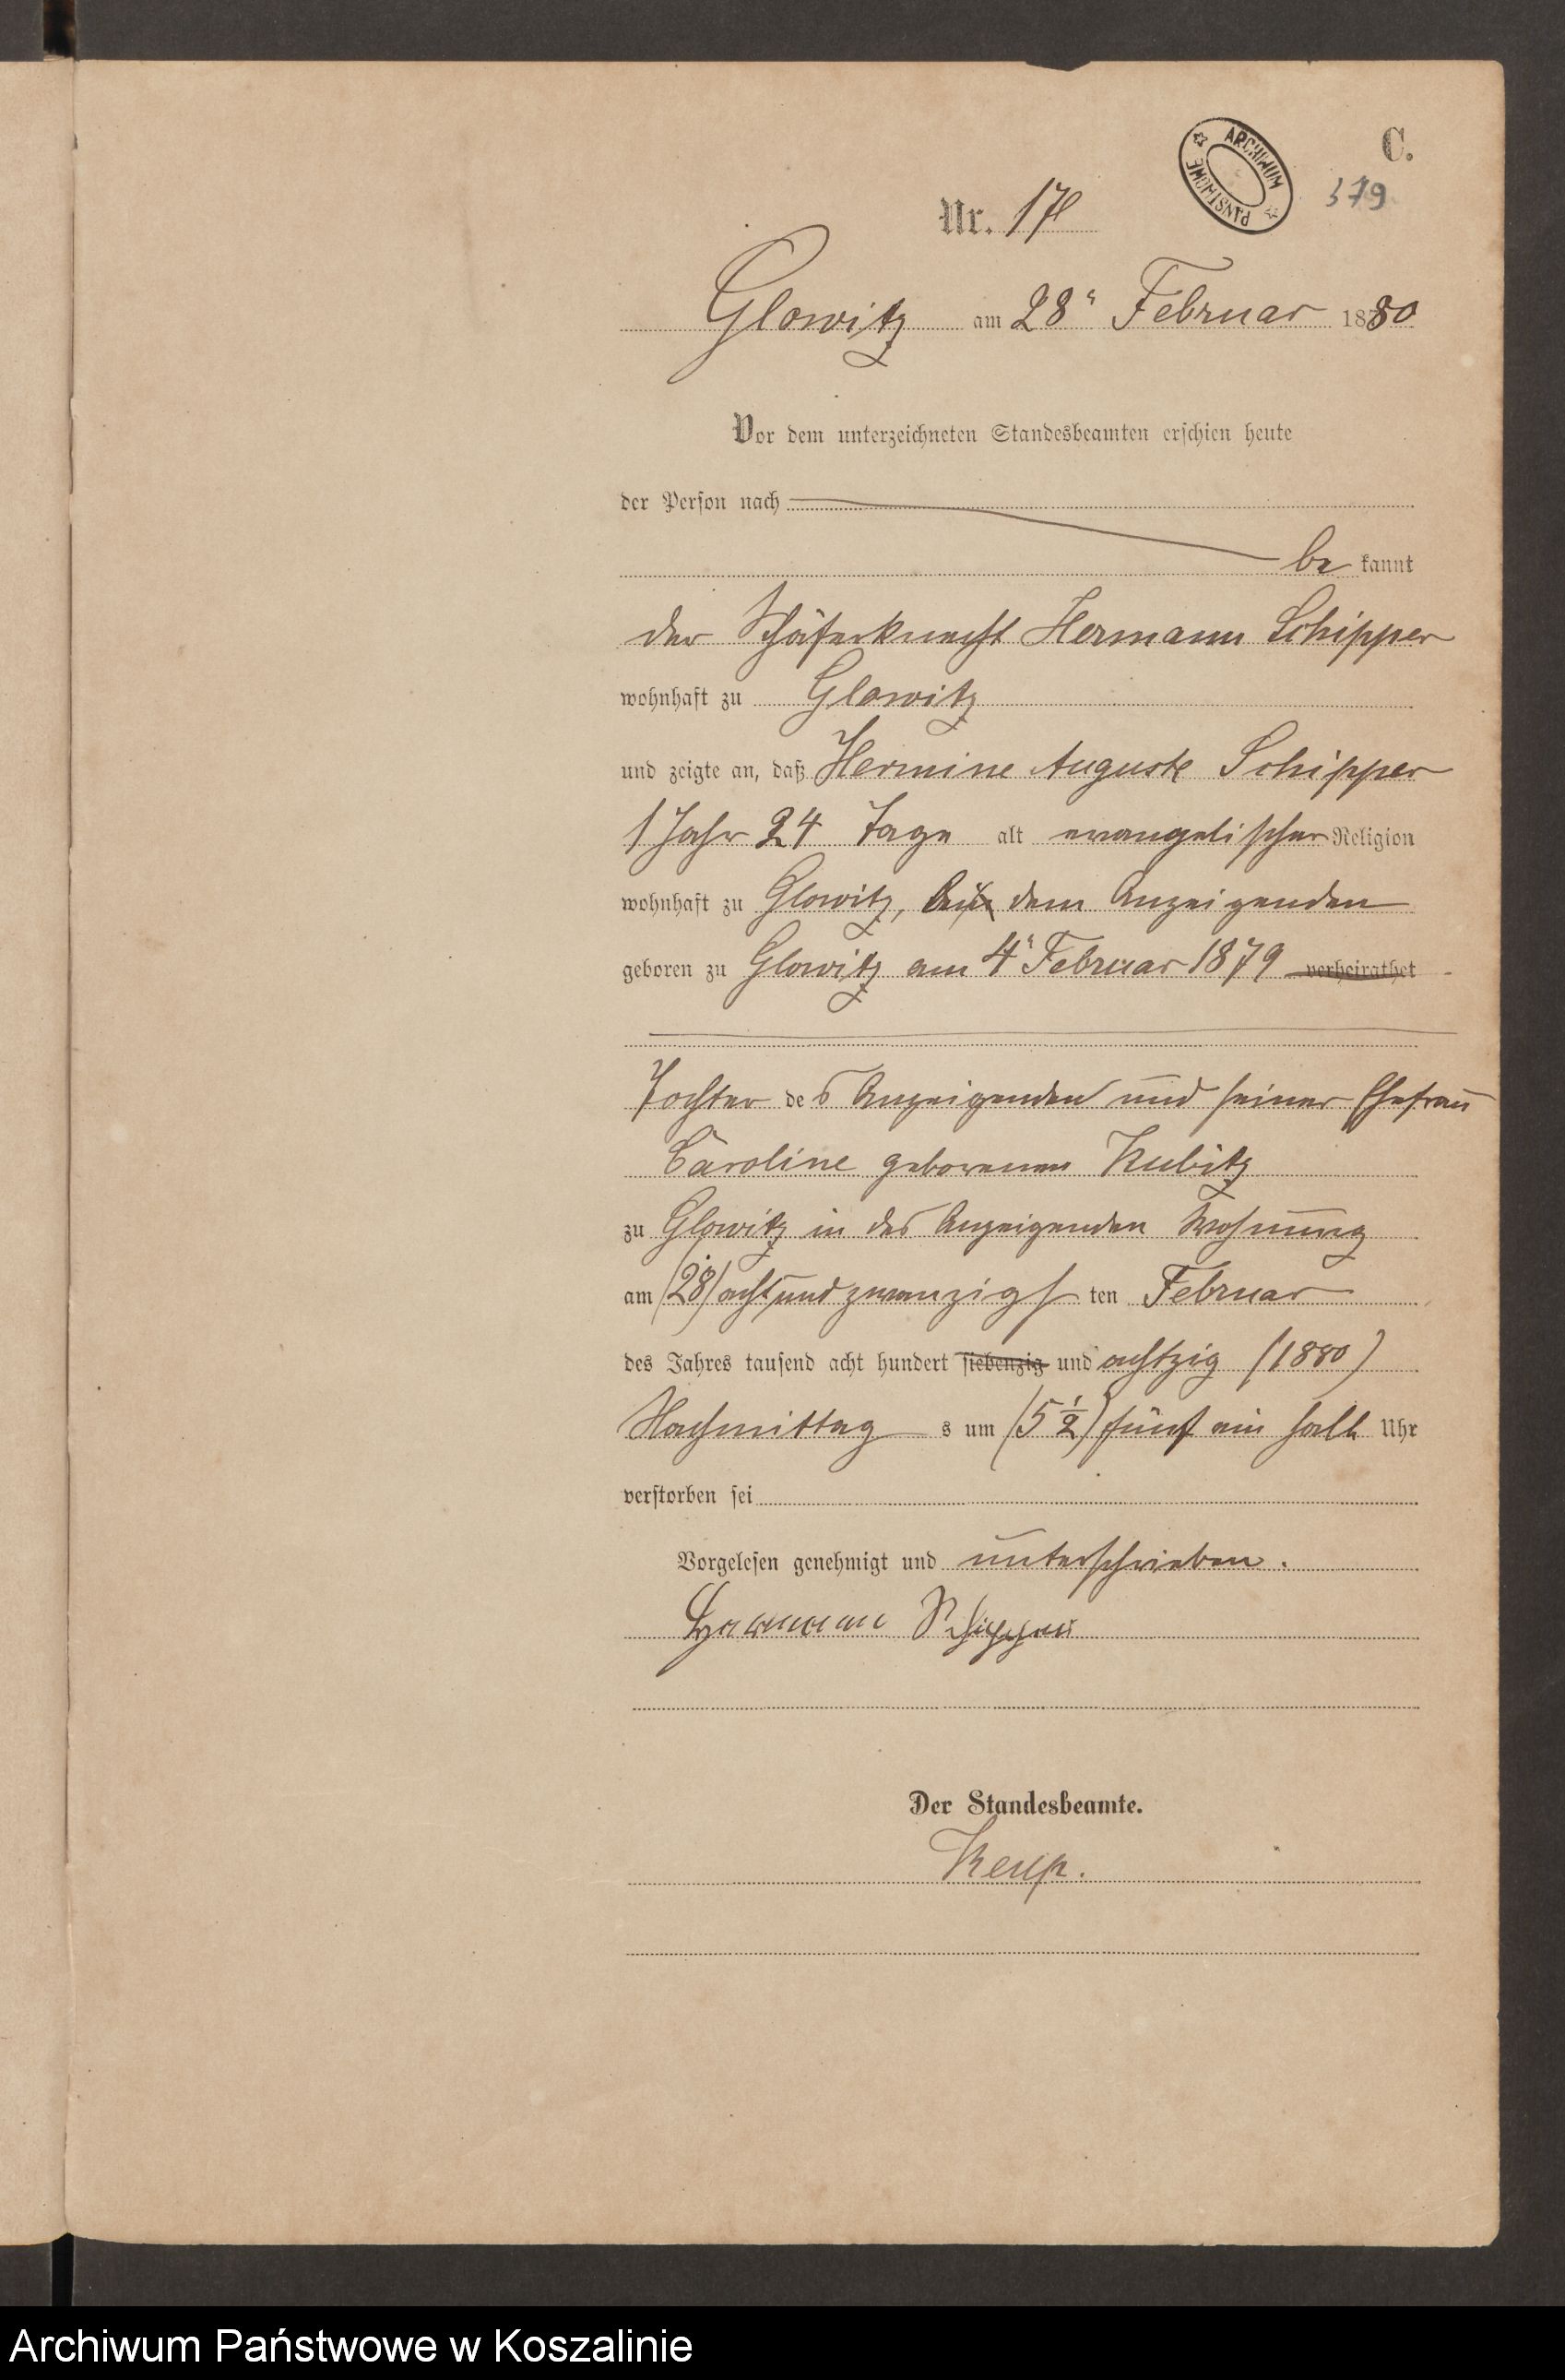 C.
379
ARCHIWUM PAŃSTWOWE
Nr. 17
Glowitz am 28ten Februar 1880
Vor dem unterzeichneten Standesbeamten erschien heute
der Person nach
be kannt
der Schäferknecht Hermann Schipper
wohnhaft zu Glowitz
und zeigte an, daß Hermine Auguste Schipper
1 Jahr 24 Tage alt evangelischer Religion
wohnhaft zu Glowitz, dem Anzeigenden
geboren zu Glowitz am 4ten Februar 1879 verheirathet
Tochter des Anzeigenden und seiner Ehefrau
Caroline geborenen Kubitz
zu Glowitz in des Anzeigenden Wohnung
am (28) acht und zwanzigsten Februar
des Jahres tausend acht hundert siebenzig und achtzig (1880)
Nachmittag s um (5 1/2) fünf ein halb Uhr
verstorben sei
Vorgelesen genehmigt und unterschrieben.
Hermann Schipper
Der Standesbeamte.
Keup.
Archiwum Państwowe w Koszalinie